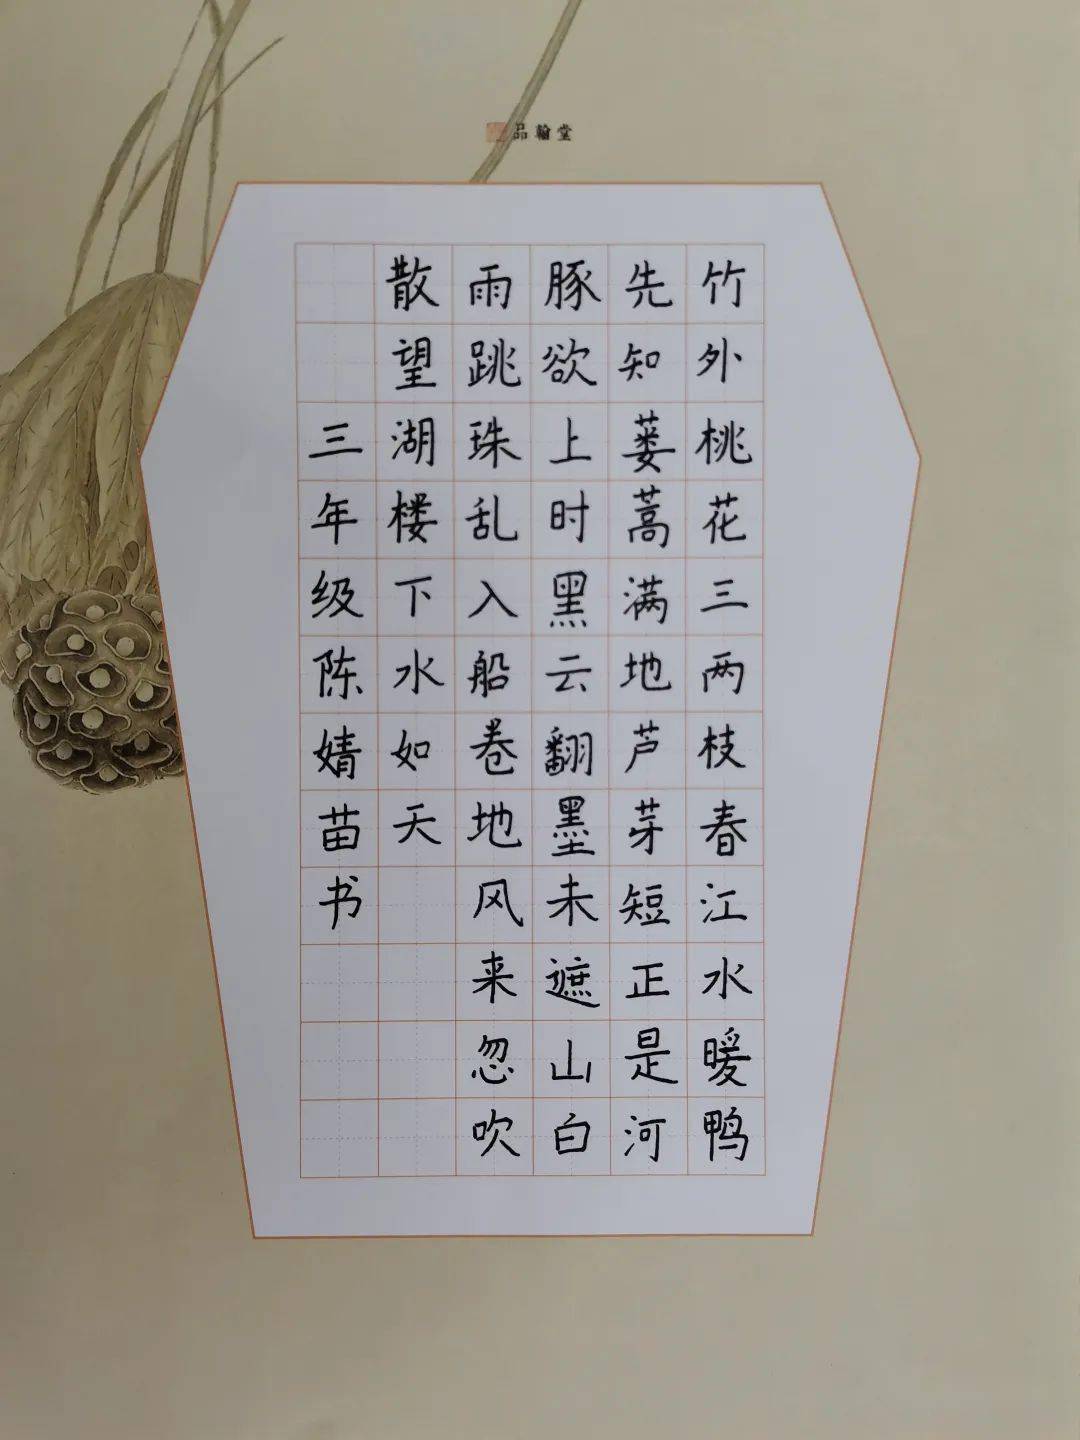 品翰堂
竹外桃花三两枝春江水暖鸭
先知蒌蒿满地芦芽短正是河
豚欲上时黑云翻墨未遮山白
雨跳珠乱入船卷地风来忽吹
散望湖楼下水如天
三年级陈婧苗书